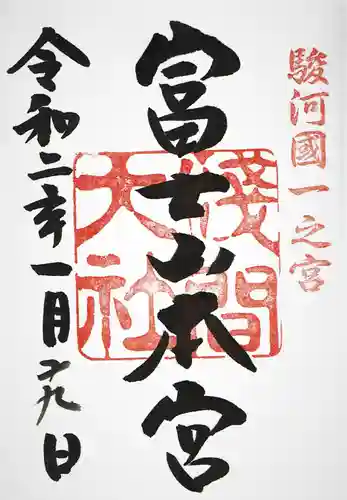 駿河國一之宮
富士山本宮
淺間大社
令和二年一月十九日